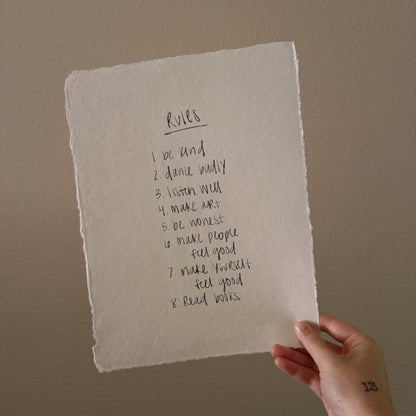 Rules
1. be kind
2. dance badly
3. listen well
4. make art
5. be honest
6 make people
feel good
7. make yourself
feel good
8 Read books
13